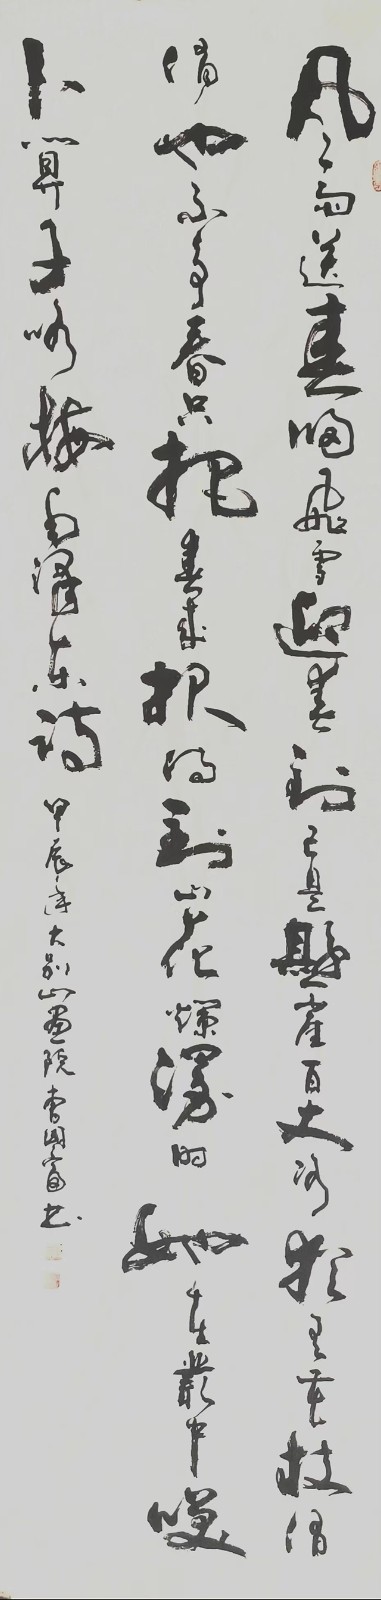 风雨送春归飛雪迎春到已是懸崖百丈冰犹有花枝俏
俏也不争春只把春来报待到山花爛漫时她在叢中笑
卜算子咏梅毛泽东诗甲辰年大别山画院曹國富书